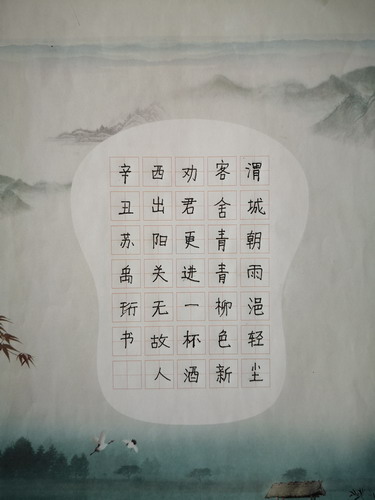 渭城朝雨浥轻尘
客舍青青柳色新
劝君更进一杯酒
西出阳关无故人
辛丑苏禹珩书